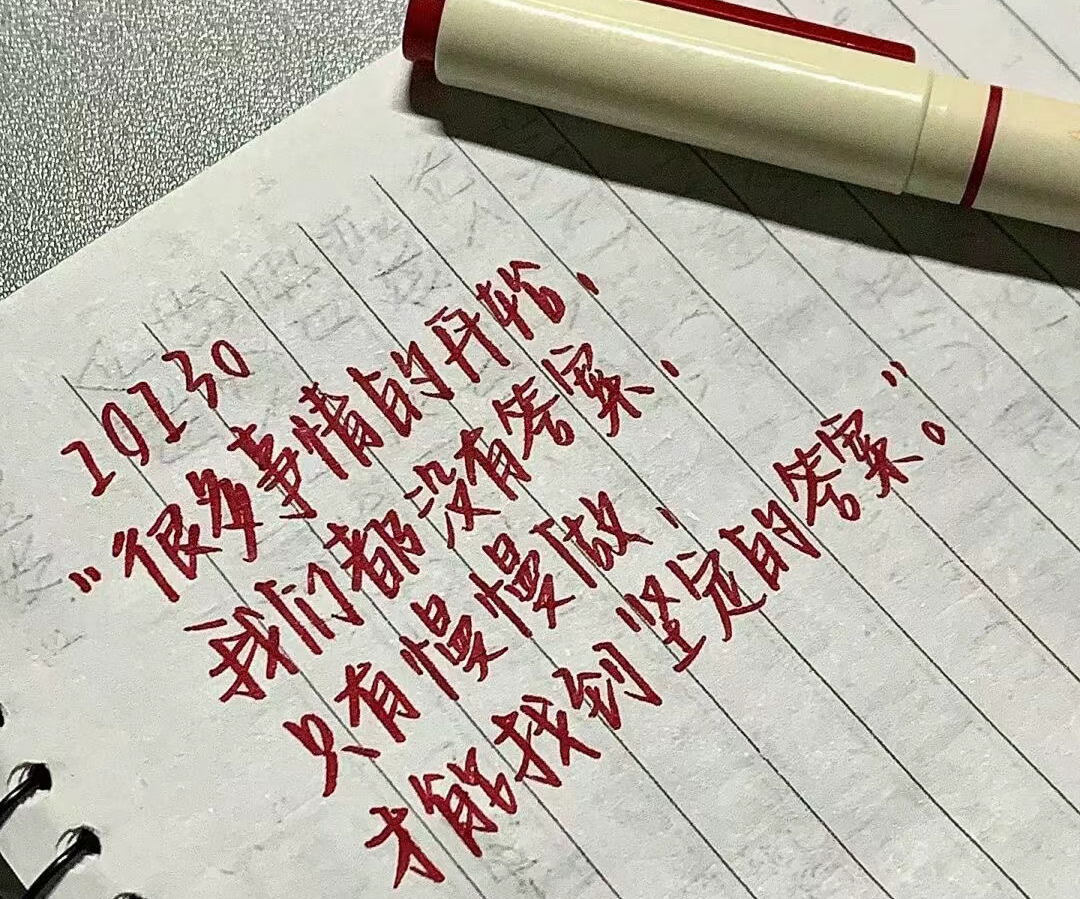 10130
“很多事情的开始,
我们都没有答案,
只有慢慢做,
才能找到坚定的答案。”